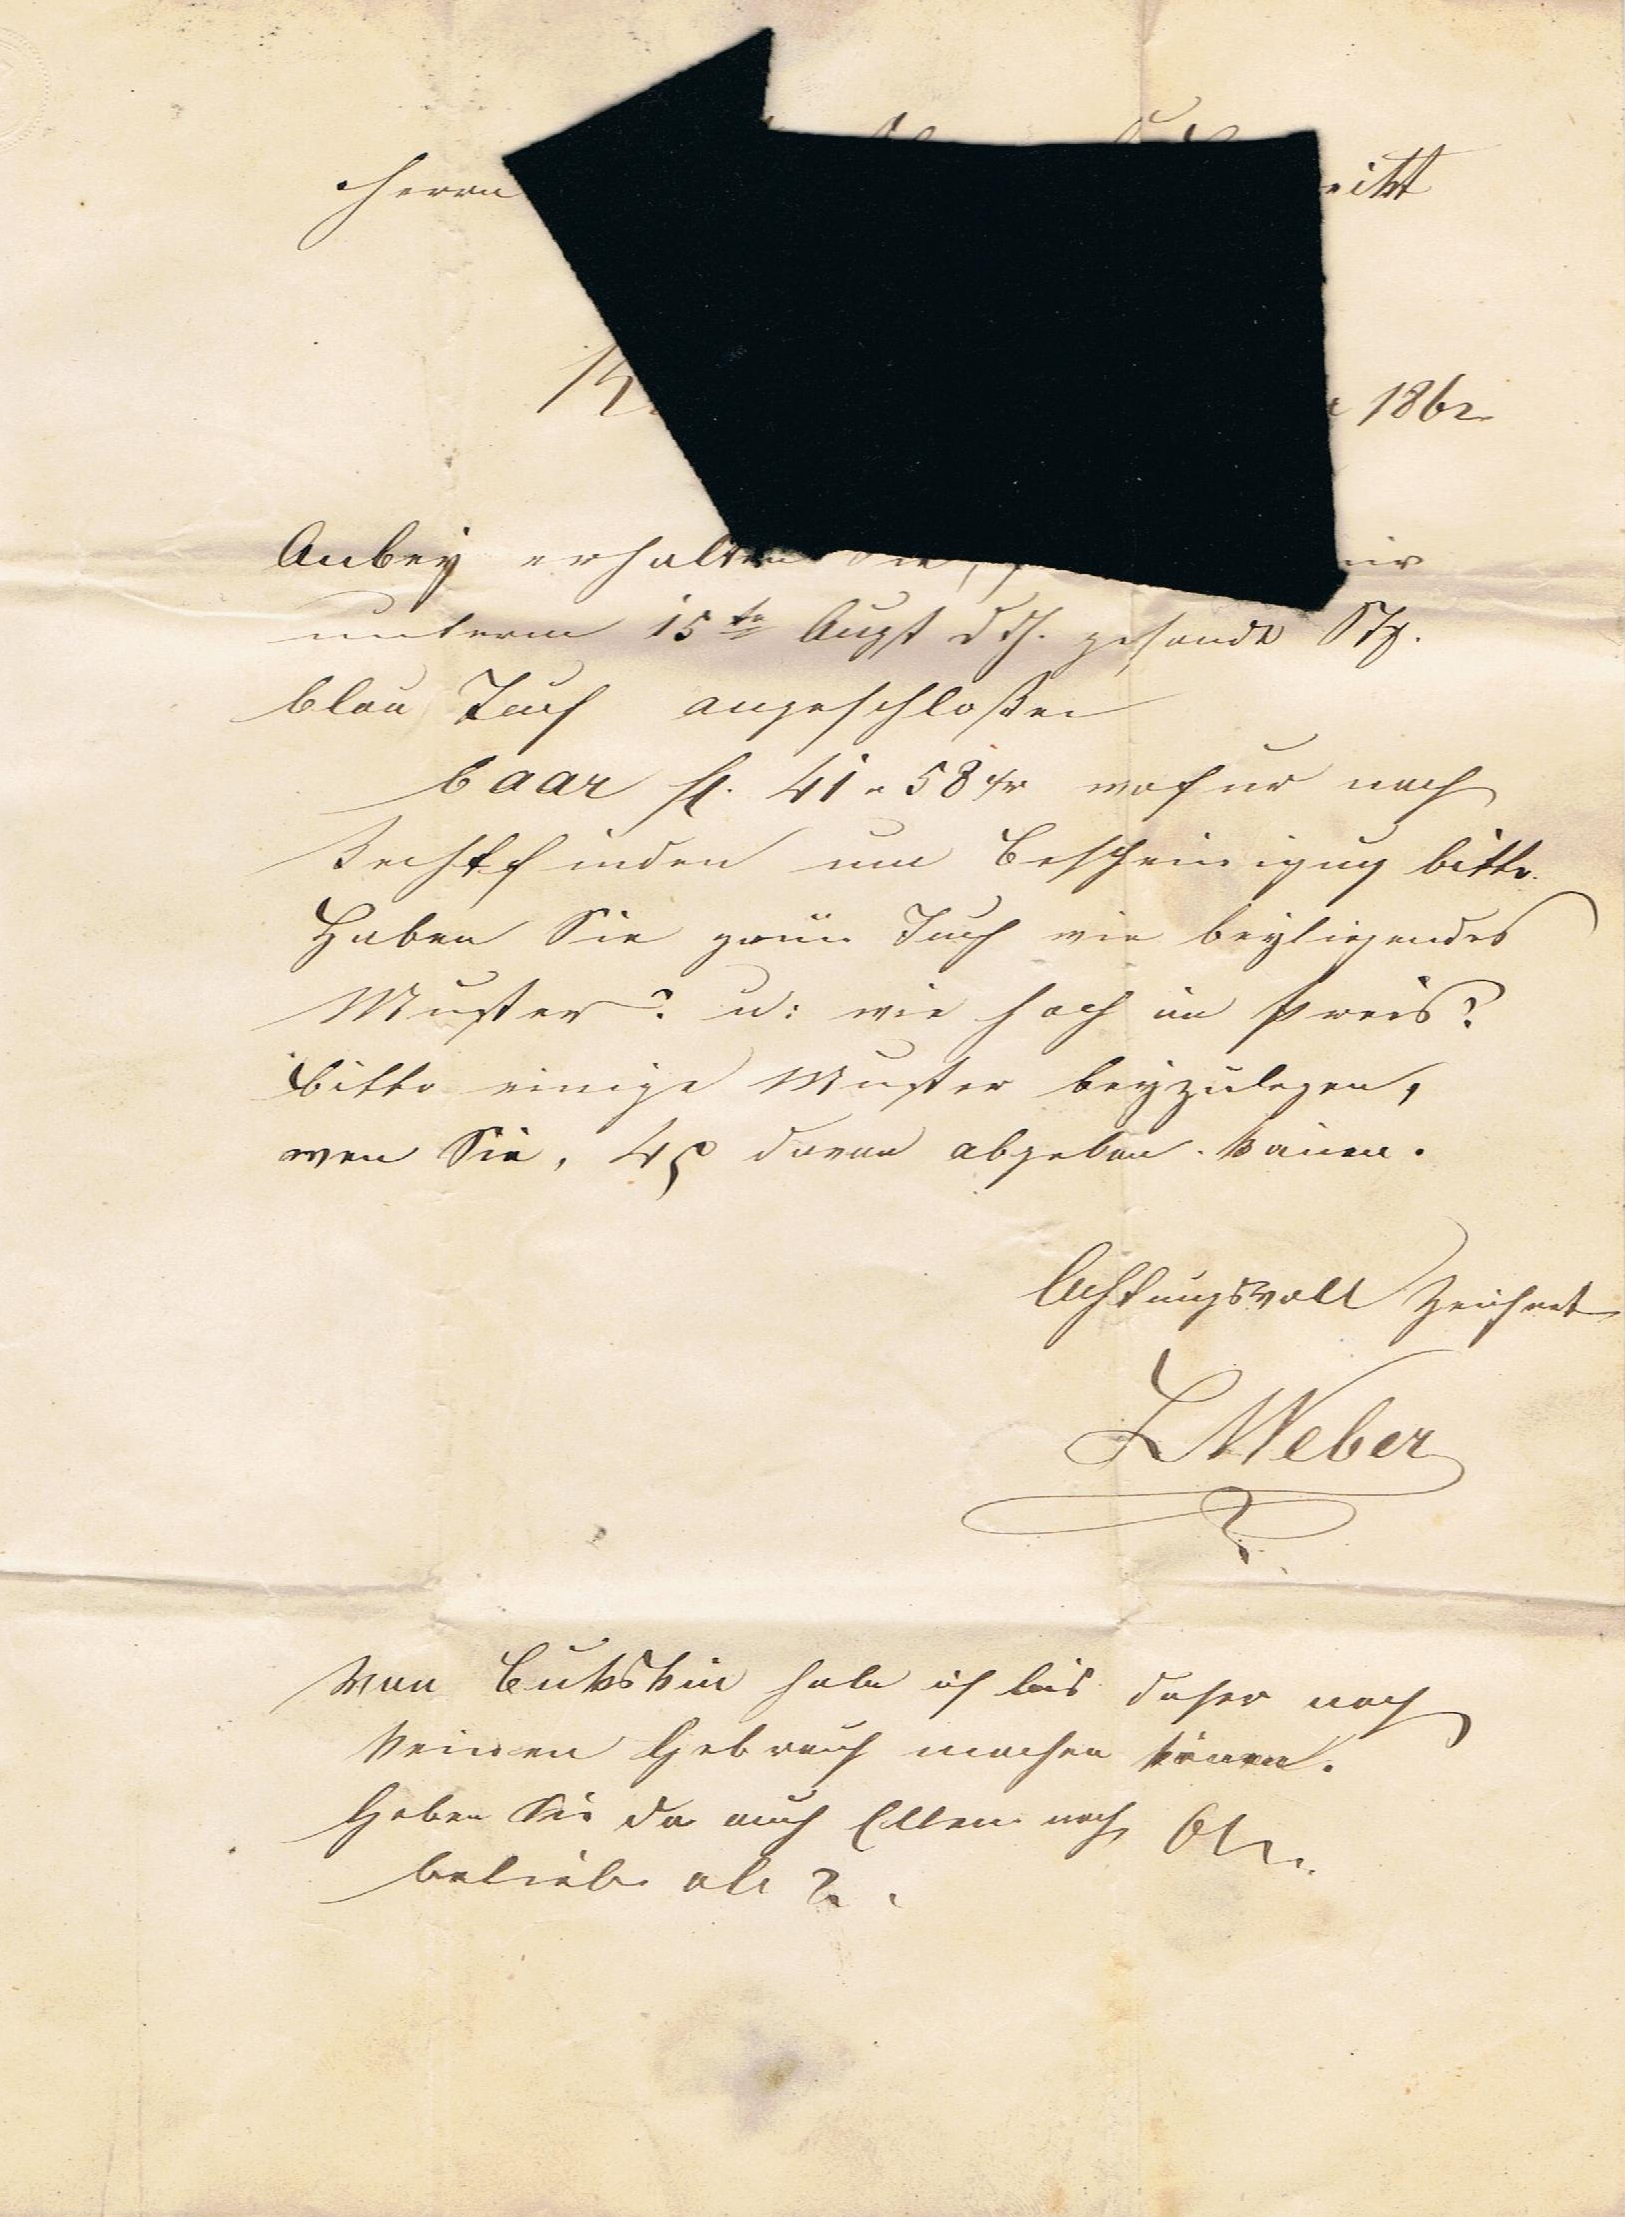 Herrn
1862
Anbey erhalten Sie,
unterm 15te Augst d J. gesandt Stk.
blau Tuch angeschloßen
baar fl. 41 " 58 xr wofur nach
Rechtfinden um Bescheinigug bitte.
Haben Sie grün Tuch wie beyliegendes
Muster? u: wie hoch im Preis?
bitte einige Muster beyzulegen,
wen Sie, davon abgeben könen.
Achtungsvoll Zeichnet
L Weber
Von Bukskin habe ich bis daher noch
keinen Gebrauch machen könen.
Haben Sie da auch Ellen nach